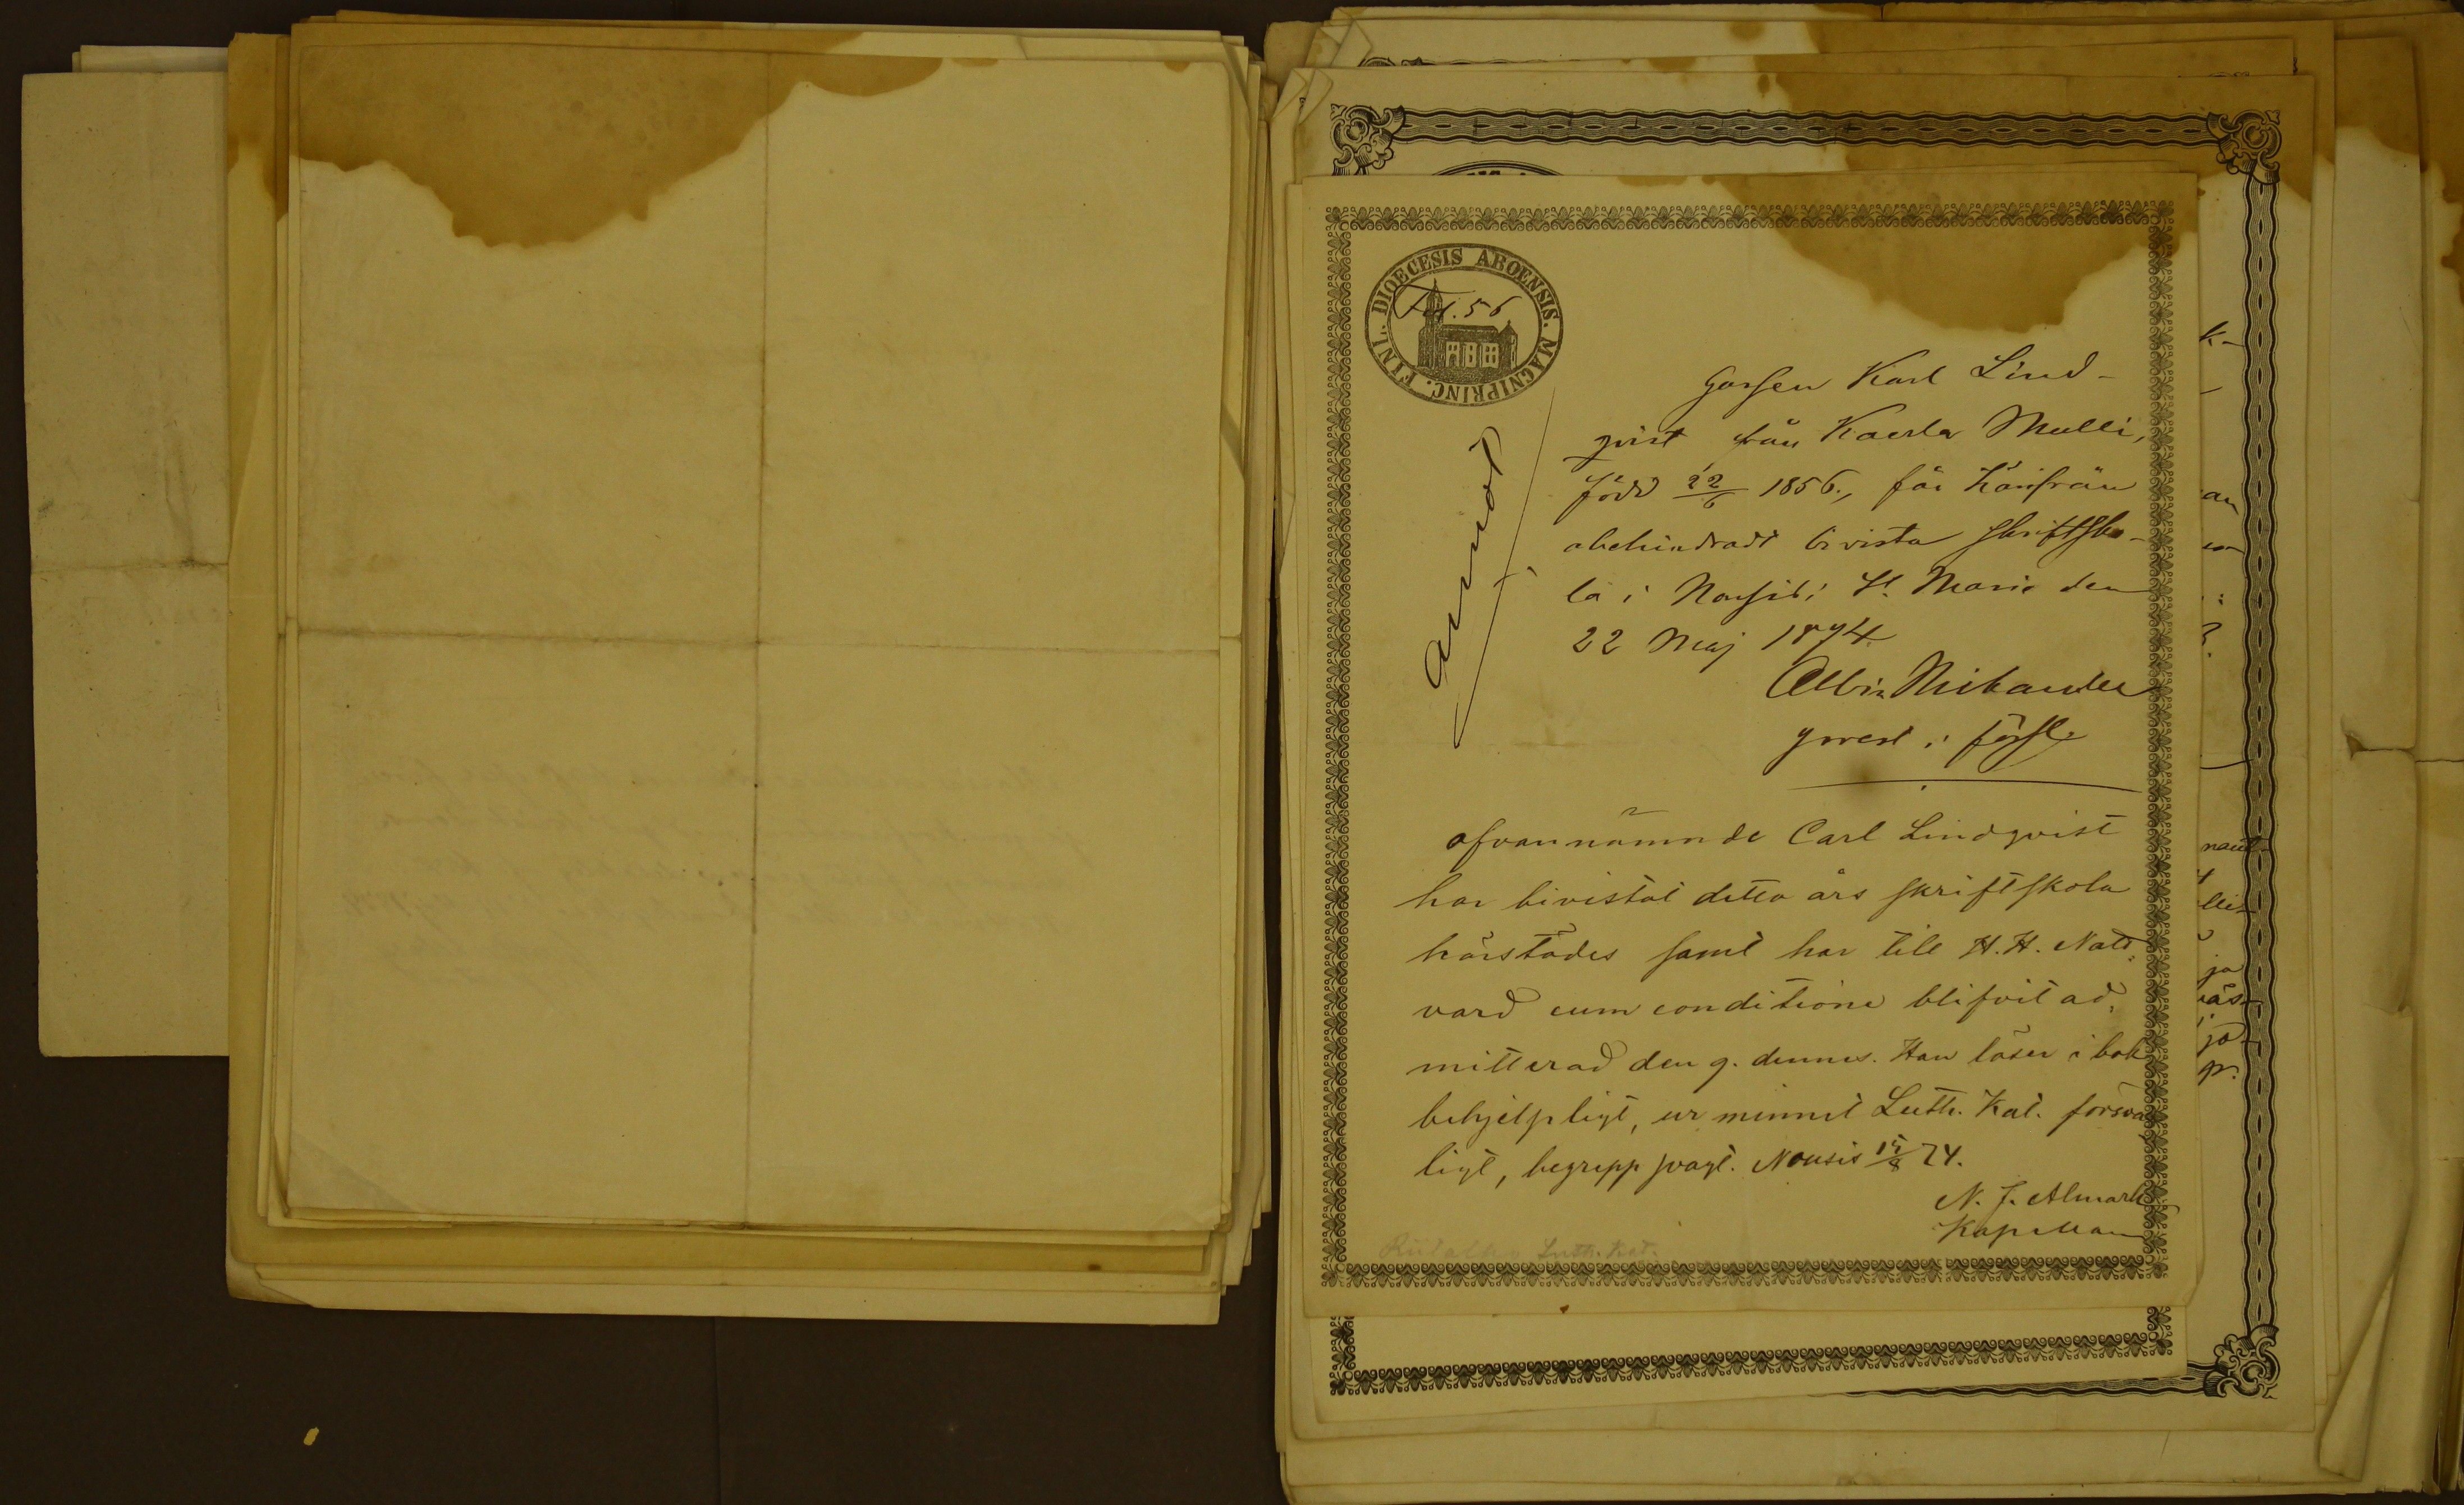 DIOECESIS ABOENSIS. MAGNIPRINC. FINL.
Fol. 56
Gossen Karl Lind-
qvist från Kaerla Mulli,
född 22/6 1856., får härifrån
obehindradt bivista skriftsko-
la i Nousis; St. Marie den
22 Maj 1874.
Albin Mikander
prest i förs.
annot
ofvannämnde Carl Lindqvist
har bivistat detta års skriftskola
härstädes samt har till H. H. Natt-
vard cum conditione blifvit ad-
mitterad den 9. dennes. Han läser i bok
behjelpligt, ur minnet Luth. Kat. försva
ligt, begrepp svagt. Nousis 74.
N. J. Almark
Kapellan
Luth. Kat.